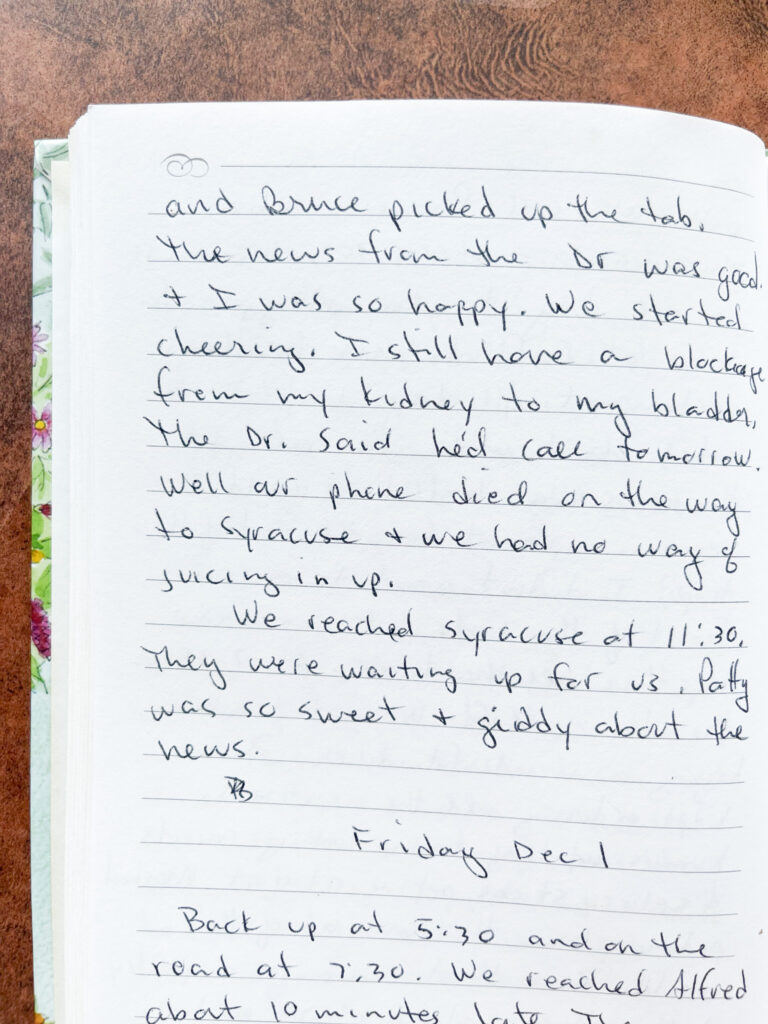 and Bruce picked up the tab.
The news from the Dr was good.
+ I was so happy. We started
cheering. I still have a blockage
from my kidney to my bladder,
the Dr. said he'd call tomorrow.
Well our phone died on the way
to Syracuse + we had no way of
juicing in up.
We reached Syracuse at 11:30.
They were waiting up for us. Patty
was so sweet + giddy about the
news.
Friday Dec 1
Back up at 5:30 and on the
road at 7:30. We reached Alfred
about 10 minutes late. The